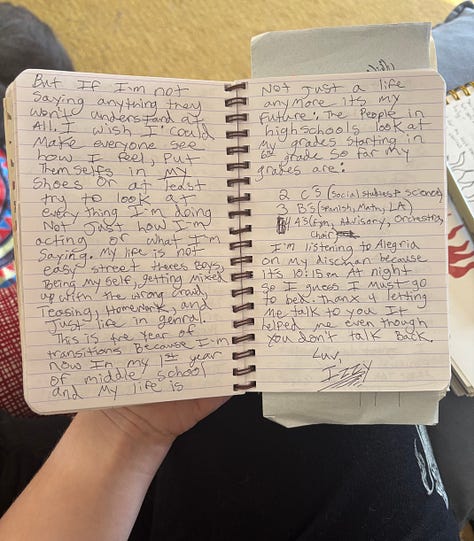 But If I'm not
Saying anything they
won't understand at
All. I wish I could
Make everyone see
how I feel, Put
Themselfs in my
Shoes Or at least
try to look at
everything I'm doing
Not Just how I'm
acting or what I'm
Saying. My life is not
easy street theres Boys,
Being my self, getting Mixed
up with the wrong crowd,
Teasing, Homework, and
Just life in genral.
This is the Year of
transitions Because I'm
now In my 1st year
of middle school
and My life is
Not just a life
anymore its my
future. The People in
highschools look at
My grades starting in
6th grade so far my
grades are:
2 C's (Social studies & science)
3 B's (Spanish, Math, LA)
4 A's (Gym, Advisory, Orchestra,
Choir)
I'm listening to Alegria
on my discman because
it's 10:15pm At night
so I guess I must go
to bed. Thanx 4 letting
Me talk to you It
helped me even though
you don't talk Back.
Luv,
IZZY